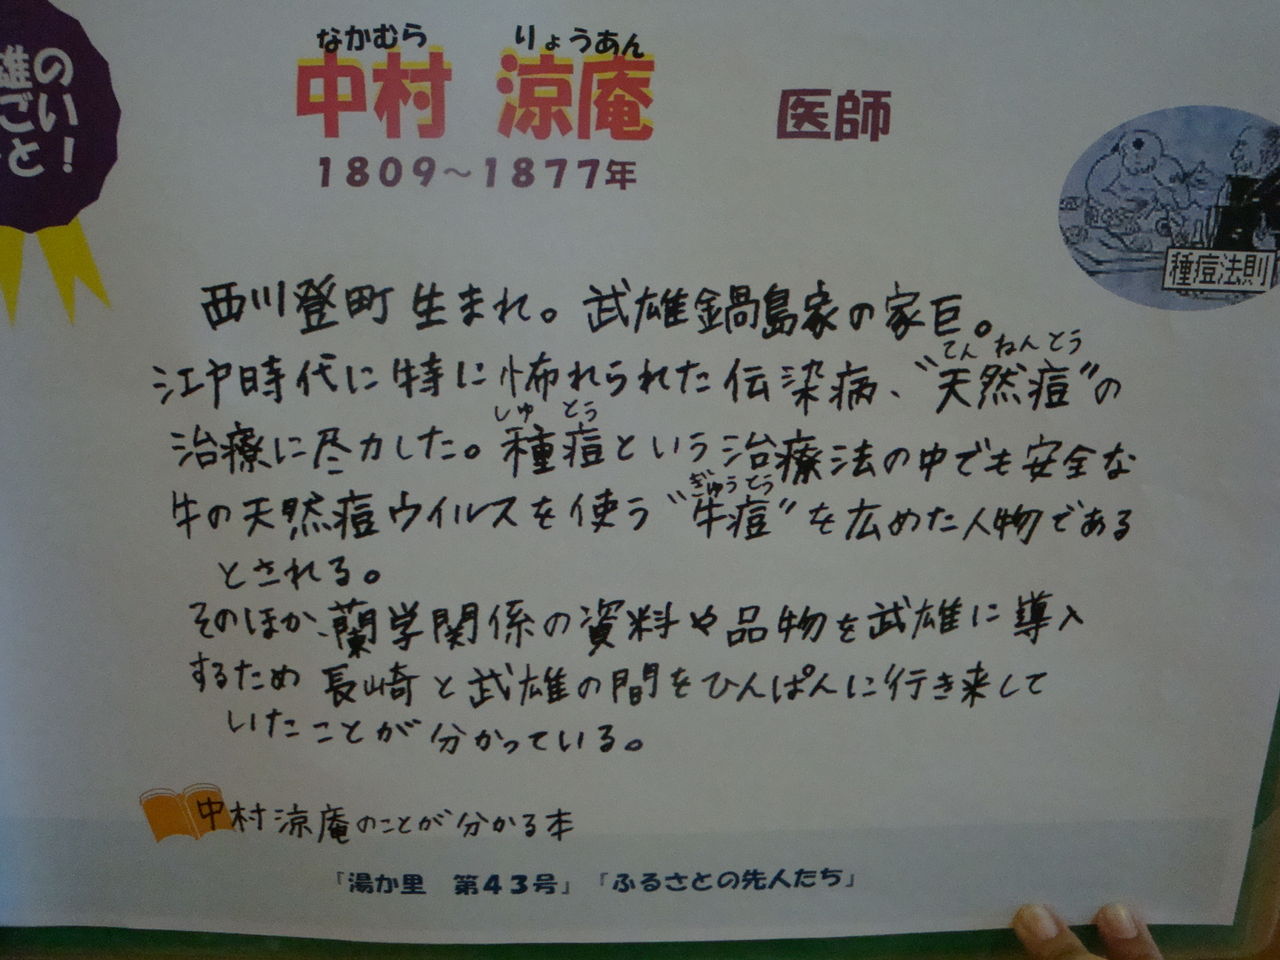 雄の
ごい
と！
なかむら りょうあん
中村 涼庵 医師
1809～1877年
種痘法則
西川登町生まれ。武雄鍋島家の家臣。
江戸時代に特に怖れられた伝染病、“天然痘”の
てん ねん とう
治療に尽力した。種痘という治療法の中でも安全な
しゅ とう
牛の天然痘ウイルスを使う“牛痘”を広めた人物である
ぎゅう とう
とされる。
そのほか、蘭学関係の資料や品物を武雄に導入
するため 長崎と武雄の間をひんぱんに行き来して
いたことが分かっている。
中村涼庵のことが分かる本
『湯か里 第43号』『ふるさとの先人たち』